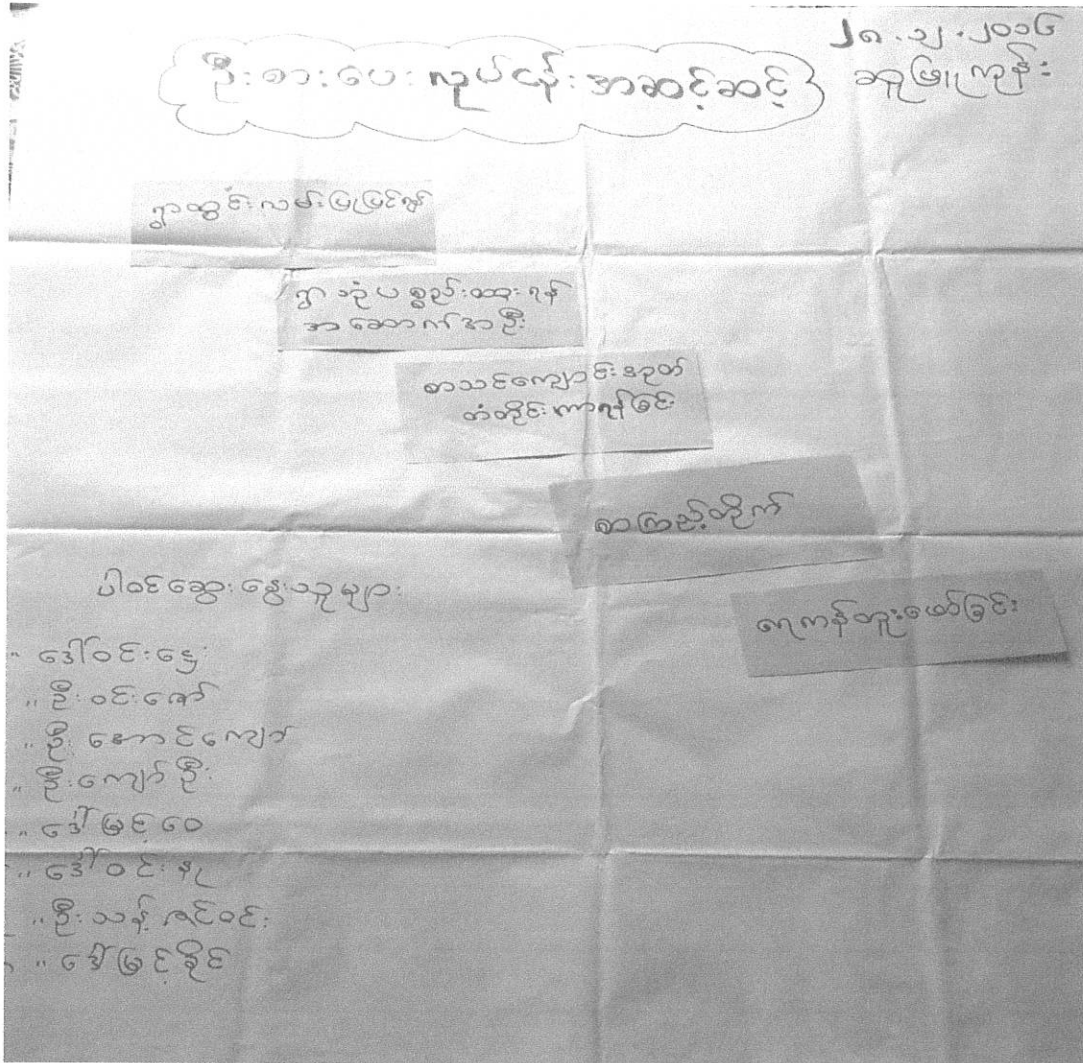 ၂၈.၁၂.၂၀၁၆
ဦးစားပေးလုပ်ငန်းအဆင့်ဆင့်
ဆူးဖြူကုန်း
ရွာတွင်းလမ်းပြုပြင်ရန်
ရွာသုံးပစ္စည်းထားရန်
အဆောက်အဦး
စာသင်ကျောင်းဥပုတ်
တံတိုင်းကာရံခြင်း
စာကြည့်တိုက်
ရေကန်တူးဖော်ခြင်း
ပါဝင်ဆွေးနွေးသူများ
" ဒေါ်ဝင်းဌေး
" ဦးဝင်းဇော်
" ဦးအောင်ကျော်
" ဦးကျော်ဦး
" ဒေါ်မြင့်ဝေ
" ဒေါ်ဝင်းနု
" ဦးသန့်ဇင်ဝင်း
" ဒေါ်မြင့်ခိုင်